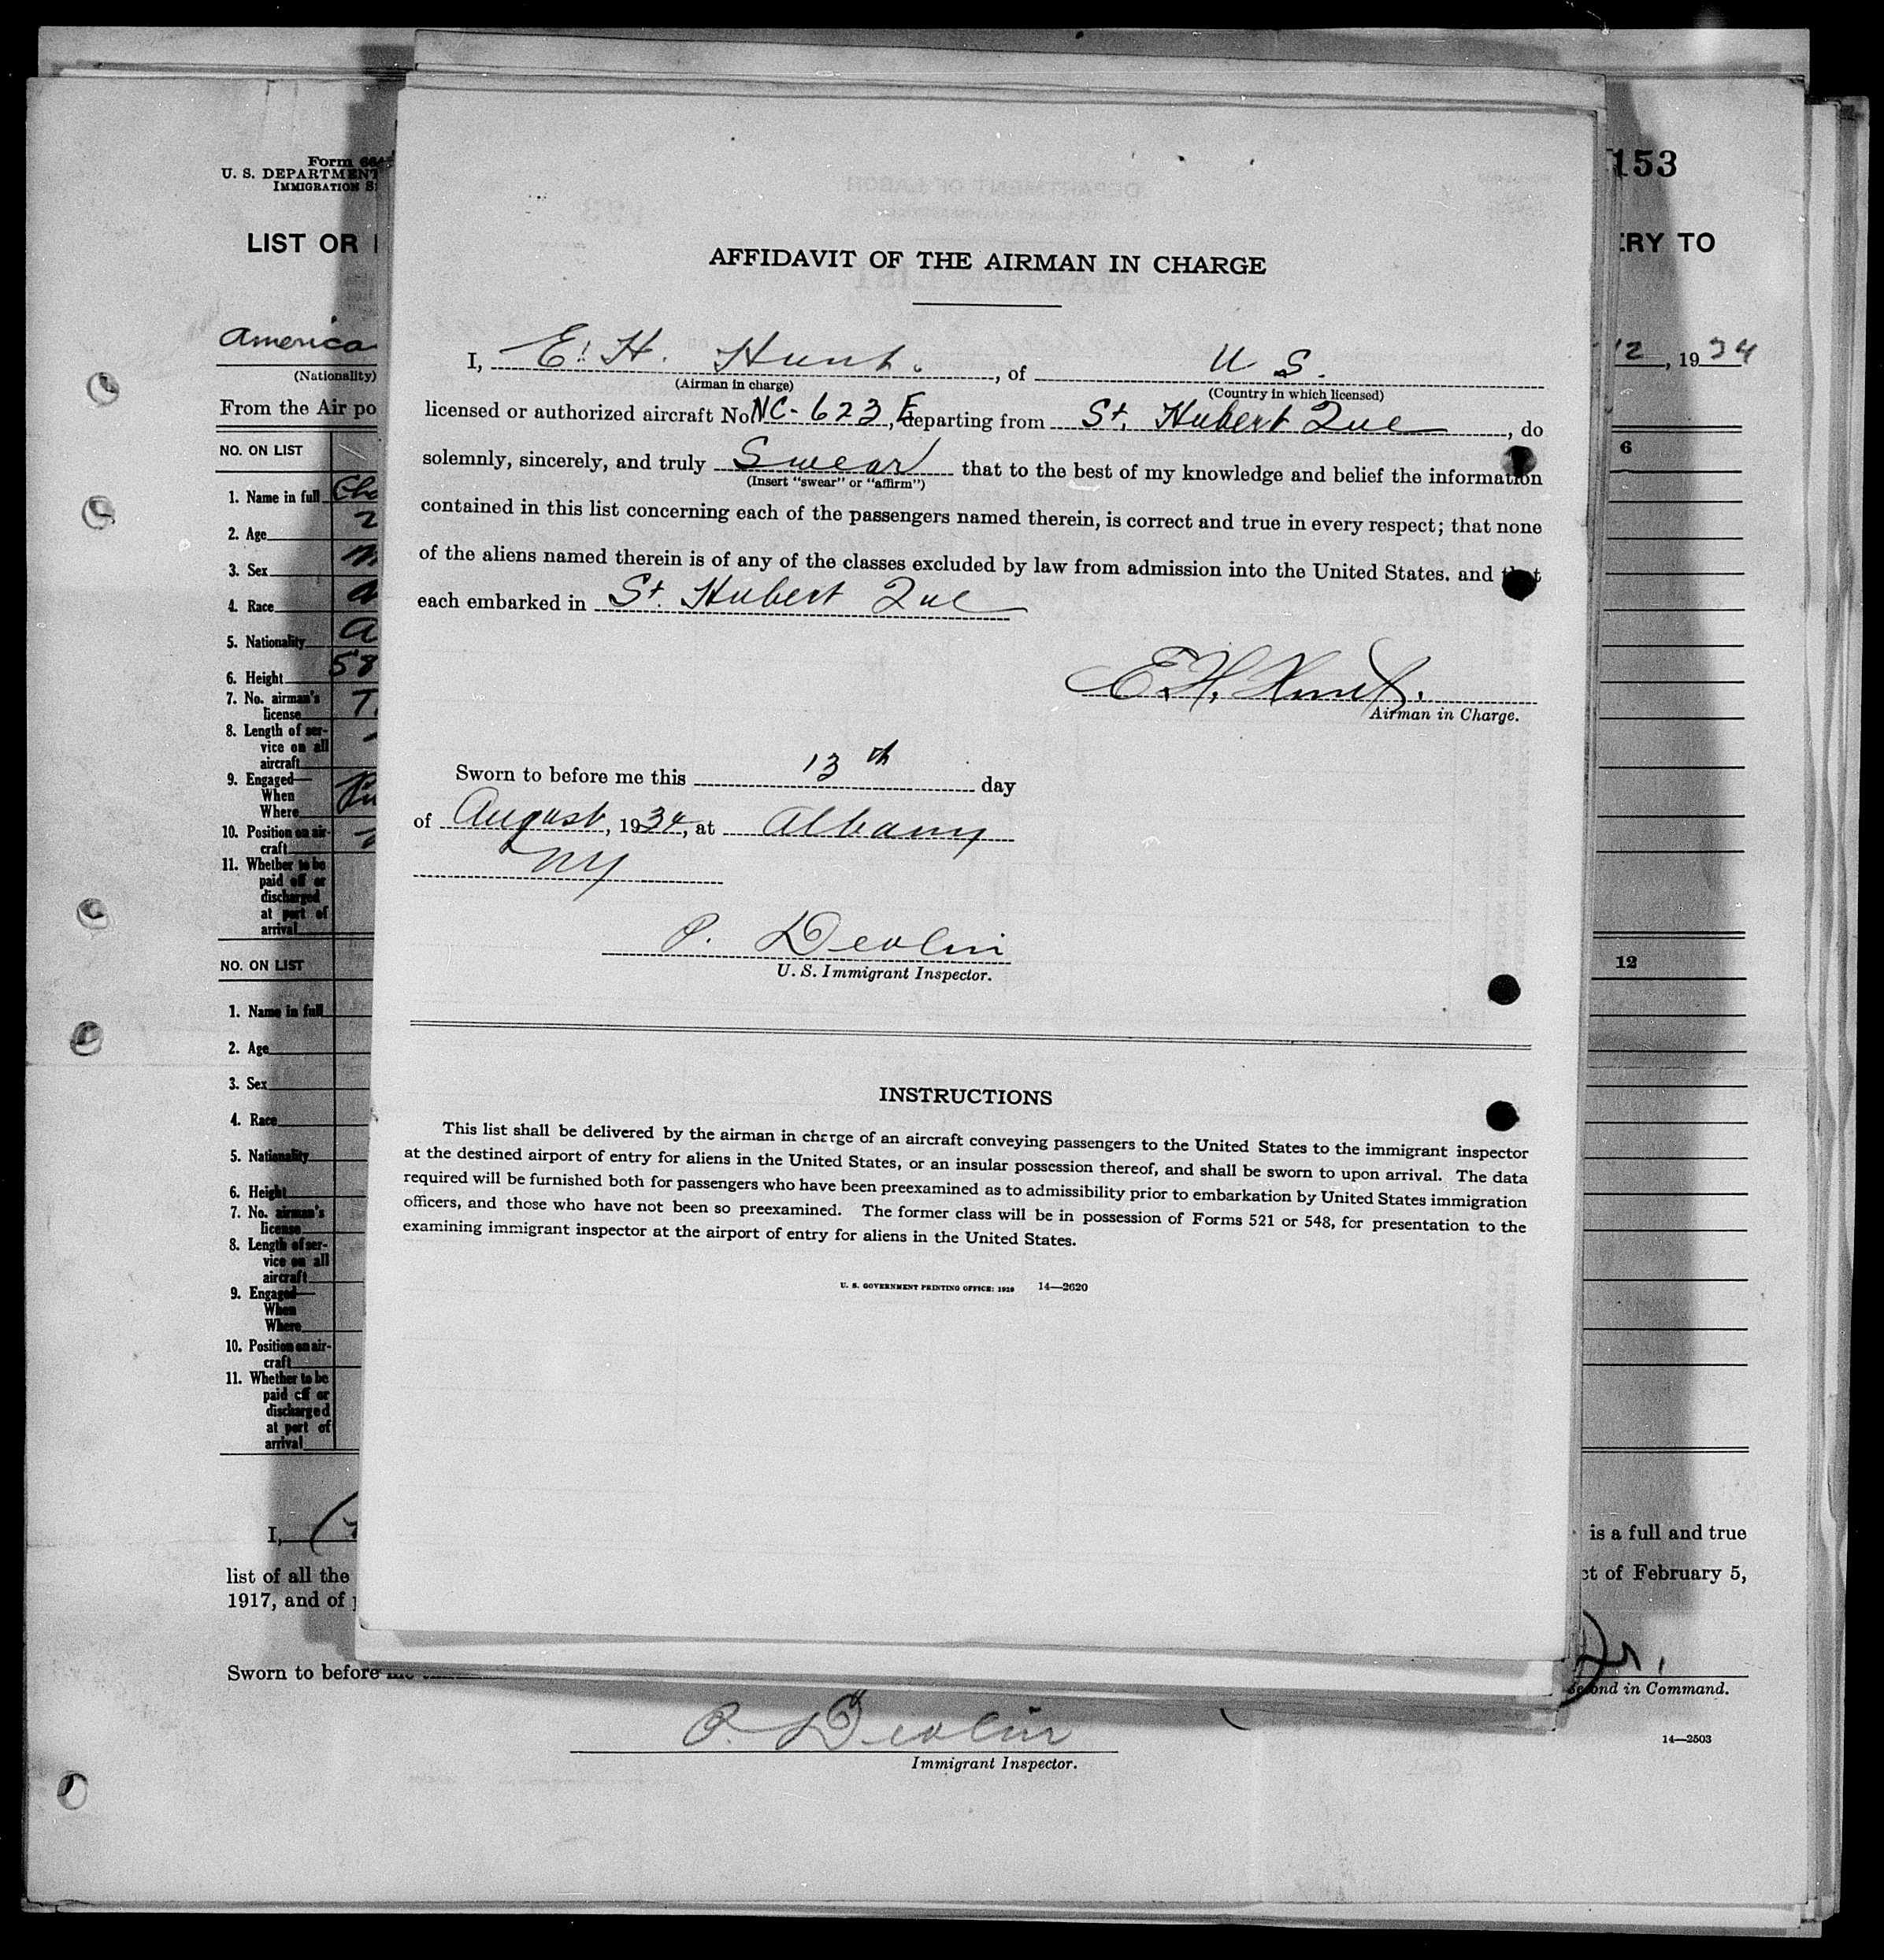 Form 664
U. S. DEPARTMENT
IMMIGRATION S
LIST OR
America
(Nationality)
From the Air po
NO. ON LIST
1. Name in full
2. Age
3. Sex
4. Race
5. Nationality
6. Height 58
7. No. airman's
license T.
8. Length of ser-
vice on all
aircraft
9. Engaged—
When
Where
10. Position on air-
craft
11. Whether to be
paid off or
discharged
at port of
arrival
NO. ON LIST
1. Name in full
2. Age
3. Sex
4. Race
5. Nationality
6. Height
7. No. airman's
license
8. Length of ser-
vice on all
aircraft
9. Engaged—
When
Where
10. Position on air-
craft
11. Whether to be
paid off or
discharged
at port of
arrival
I,
list of all the
1917, and of
Sworn to before me
P. Devlin
Immigrant Inspector.
AFFIDAVIT OF THE AIRMAN IN CHARGE
I, E. H. Hunt. , of U S.
(Airman in charge) (Country in which licensed)
licensed or authorized aircraft No. NC-623E, departing from St. Hubert Que , do
solemnly, sincerely, and truly Swear that to the best of my knowledge and belief the information
(Insert "swear" or "affirm")
contained in this list concerning each of the passengers named therein, is correct and true in every respect; that none
of the aliens named therein is of any of the classes excluded by law from admission into the United States. and that
each embarked in St. Hubert Que
E. H. Hunt.
Airman in Charge.
Sworn to before me this 13th day
of August, 1934, at Albany
NY
P. Devlin
U. S. Immigrant Inspector.
INSTRUCTIONS
This list shall be delivered by the airman in charge of an aircraft conveying passengers to the United States to the immigrant inspector
at the destined airport of entry for aliens in the United States, or an insular possession thereof, and shall be sworn to upon arrival. The data
required will be furnished both for passengers who have been preexamined as to admissibility prior to embarkation by United States immigration
officers, and those who have not been so preexamined. The former class will be in possession of Forms 521 or 548, for presentation to the
examining immigrant inspector at the airport of entry for aliens in the United States.
U. S. GOVERNMENT PRINTING OFFICE: 1929 14—2620
153
ERY TO
12, 1934
6
12
is a full and true
ct of February 5,
Jr.
second in Command.
14—2503